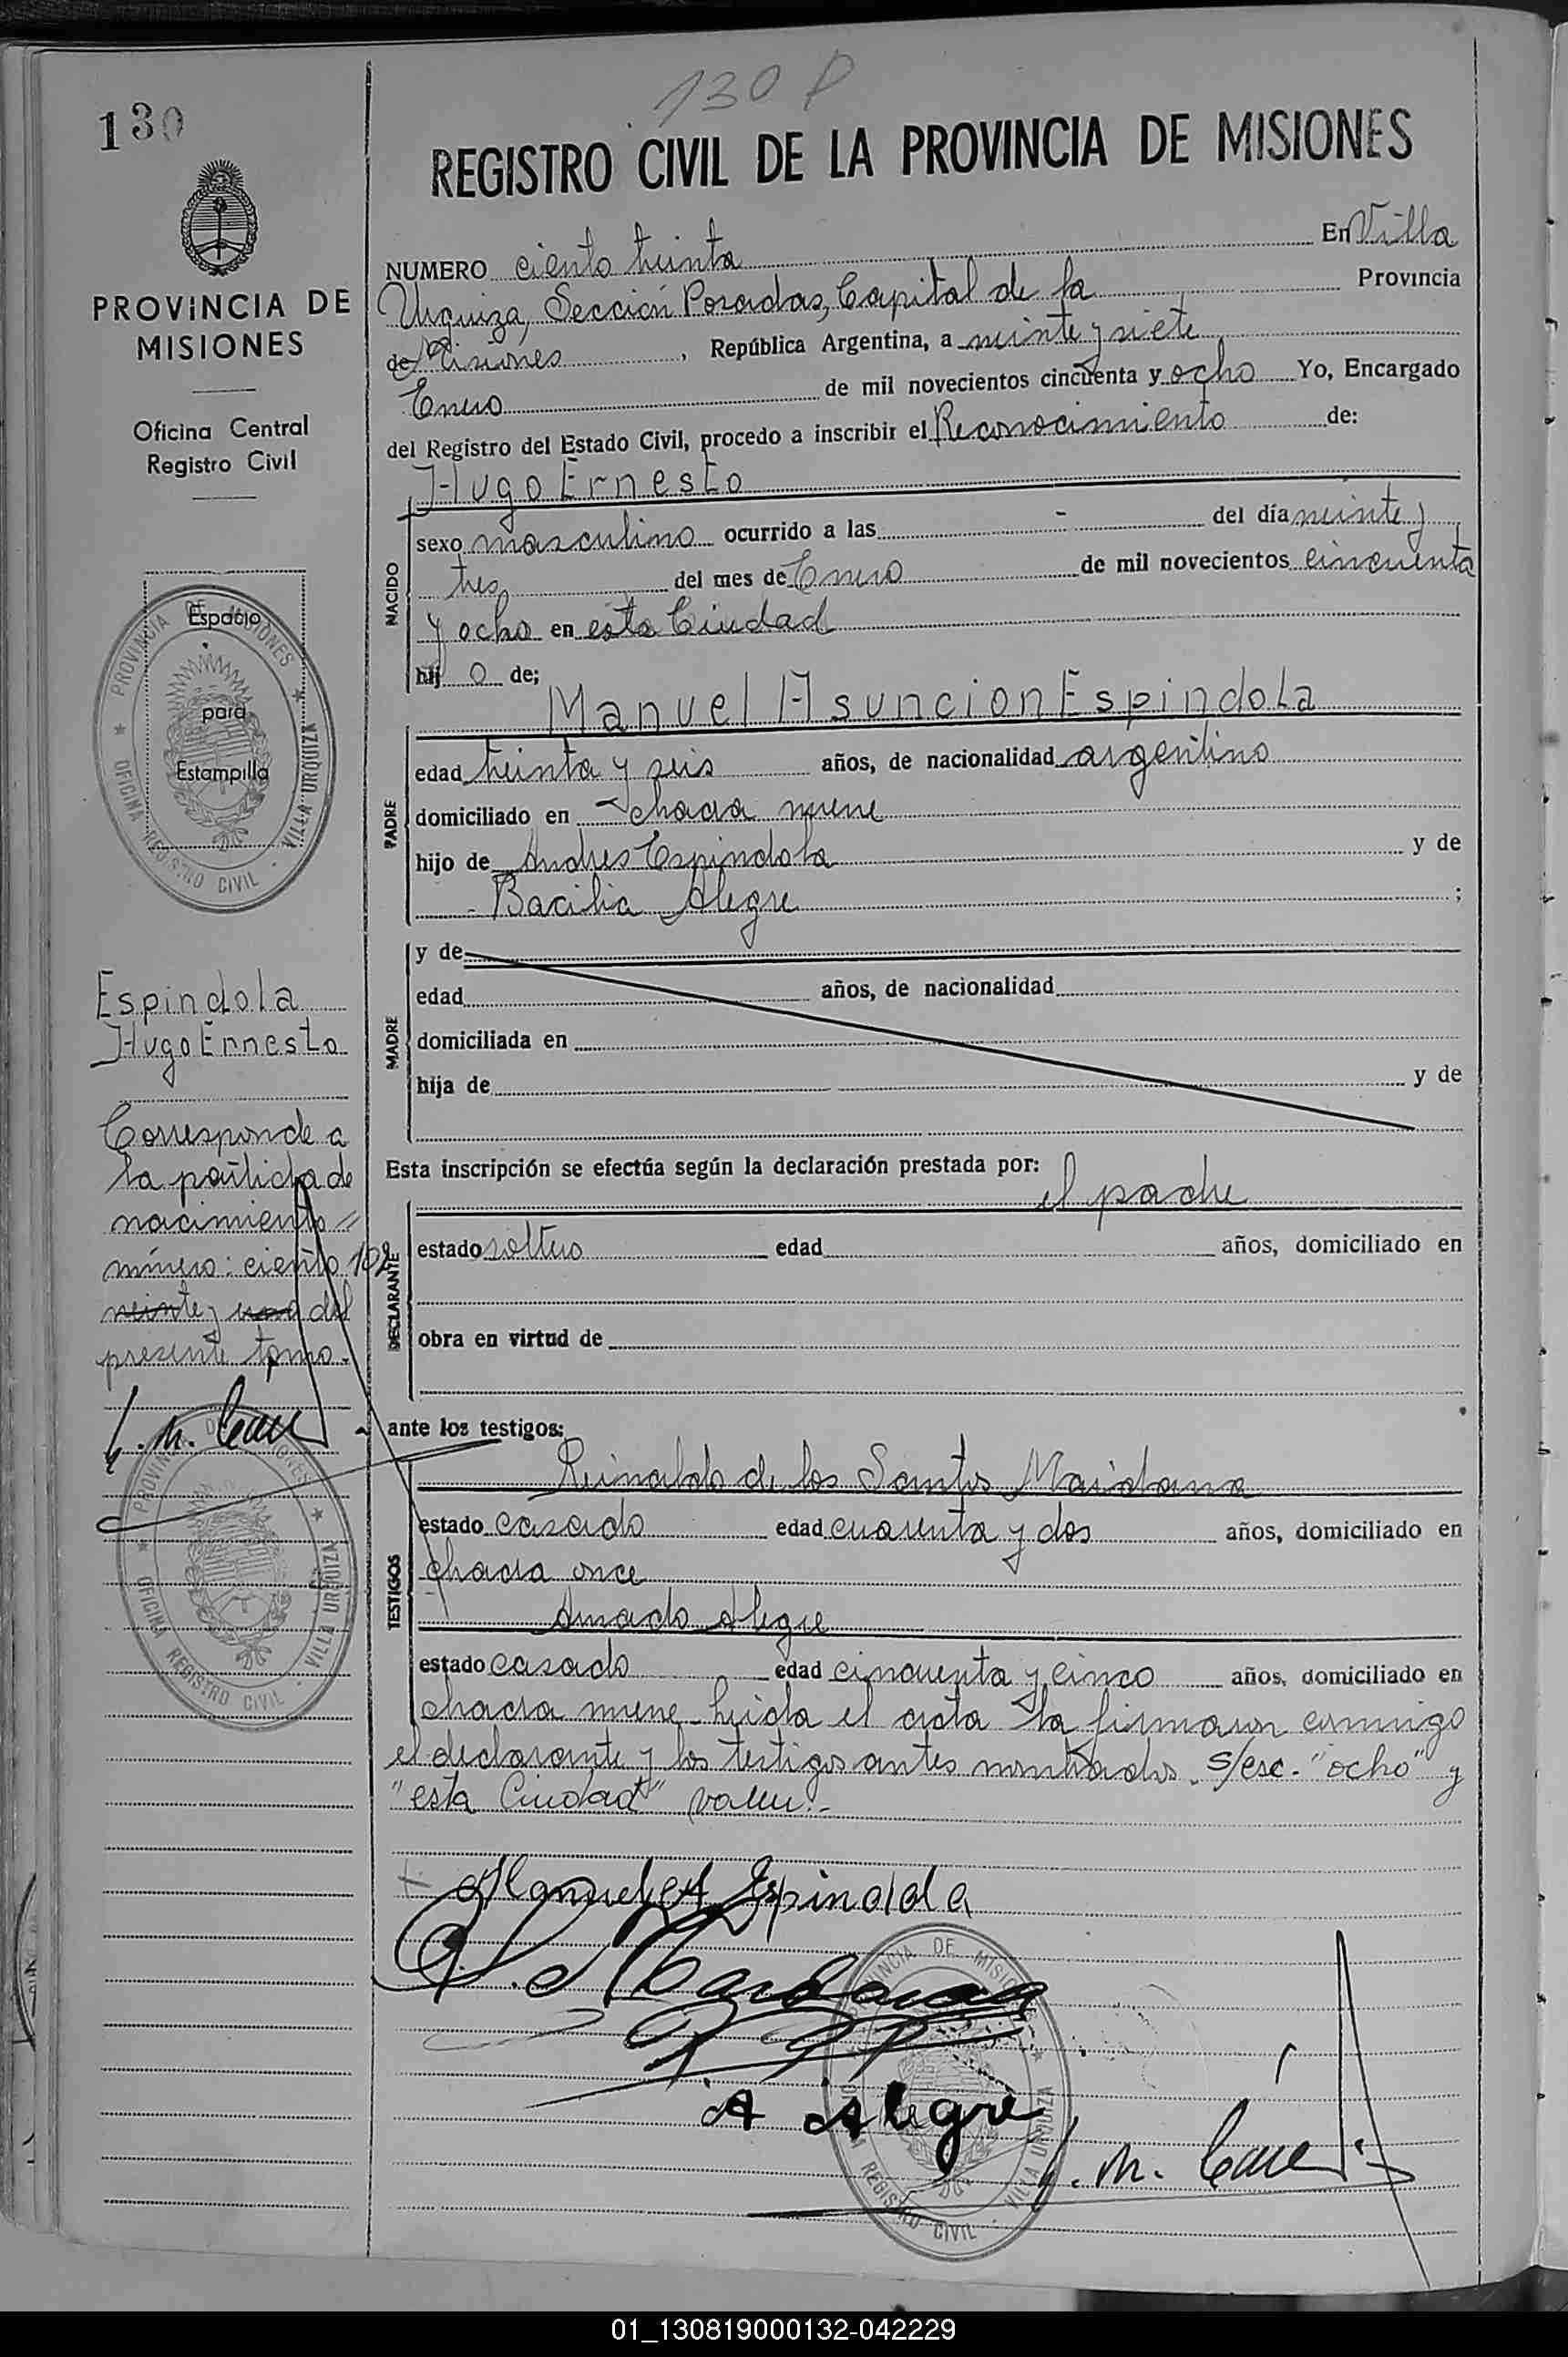 130 P
130
REGISTRO CIVIL DE LA PROVINCIA DE MISIONES
PROVINCIA DE
MISIONES
Oficina Central
Registro Civil
NUMERO ciento treinta En Villa
Urquiza, Sección Posadas, Capital de la Provincia
de Misiones, República Argentina, a veinte y siete
Enero de mil novecientos cincuenta y ocho Yo, Encargado
del Registro del Estado Civil, procedo a inscribir el Reconocimiento de:
Hugo Ernesto
NACIDO
sexo masculino ocurrido a las - del día veinte y
tres del mes de Enero de mil novecientos cincuenta
y ocho en esta Ciudad
hij o de;
Manuel Asuncion Espindola
PADRE
edad treinta y seis años, de nacionalidad argentino
domiciliado en chacra nueve
hijo de Andres Espindola y de
Bacilia Alegre ;
MADRE
y de
edad años, de nacionalidad
domiciliada en
hija de y de
Esta inscripción se efectúa según la declaración prestada por:
el padre
DECLARANTE
estado soltero edad años, domiciliado en
obra en virtud de
ante los testigos:
TESTIGOS
Reinaldo de los Santos Maidana
estado casado edad cuarenta y dos años, domiciliado en
chacra once
Amado Alegre
estado casado edad cincuenta y cinco años, domiciliado en
chacra nueve leida el acta la firmaron conmigo
el declarante y los testigos antes nombrados. s/esc. "ocho" y
"esta Ciudad" valen.-
Manuel A Espindola
A Alegre
Espacio
para
Estampilla
PROVINCIA DE MISIONES
OFICINA REGISTRO CIVIL - VILLA URQUIZA
Espindola
Hugo Ernesto
Corresponde a
la partida de
nacimiento
número: ciento 102
veinte y una del
presente tomo.
PROVINCIA DE MISIONES
OFICINA REGISTRO CIVIL - VILLA URQUIZA
PROVINCIA DE MISIONES
REGISTRO CIVIL - VILLA URQUIZA
01_130819000132-042229